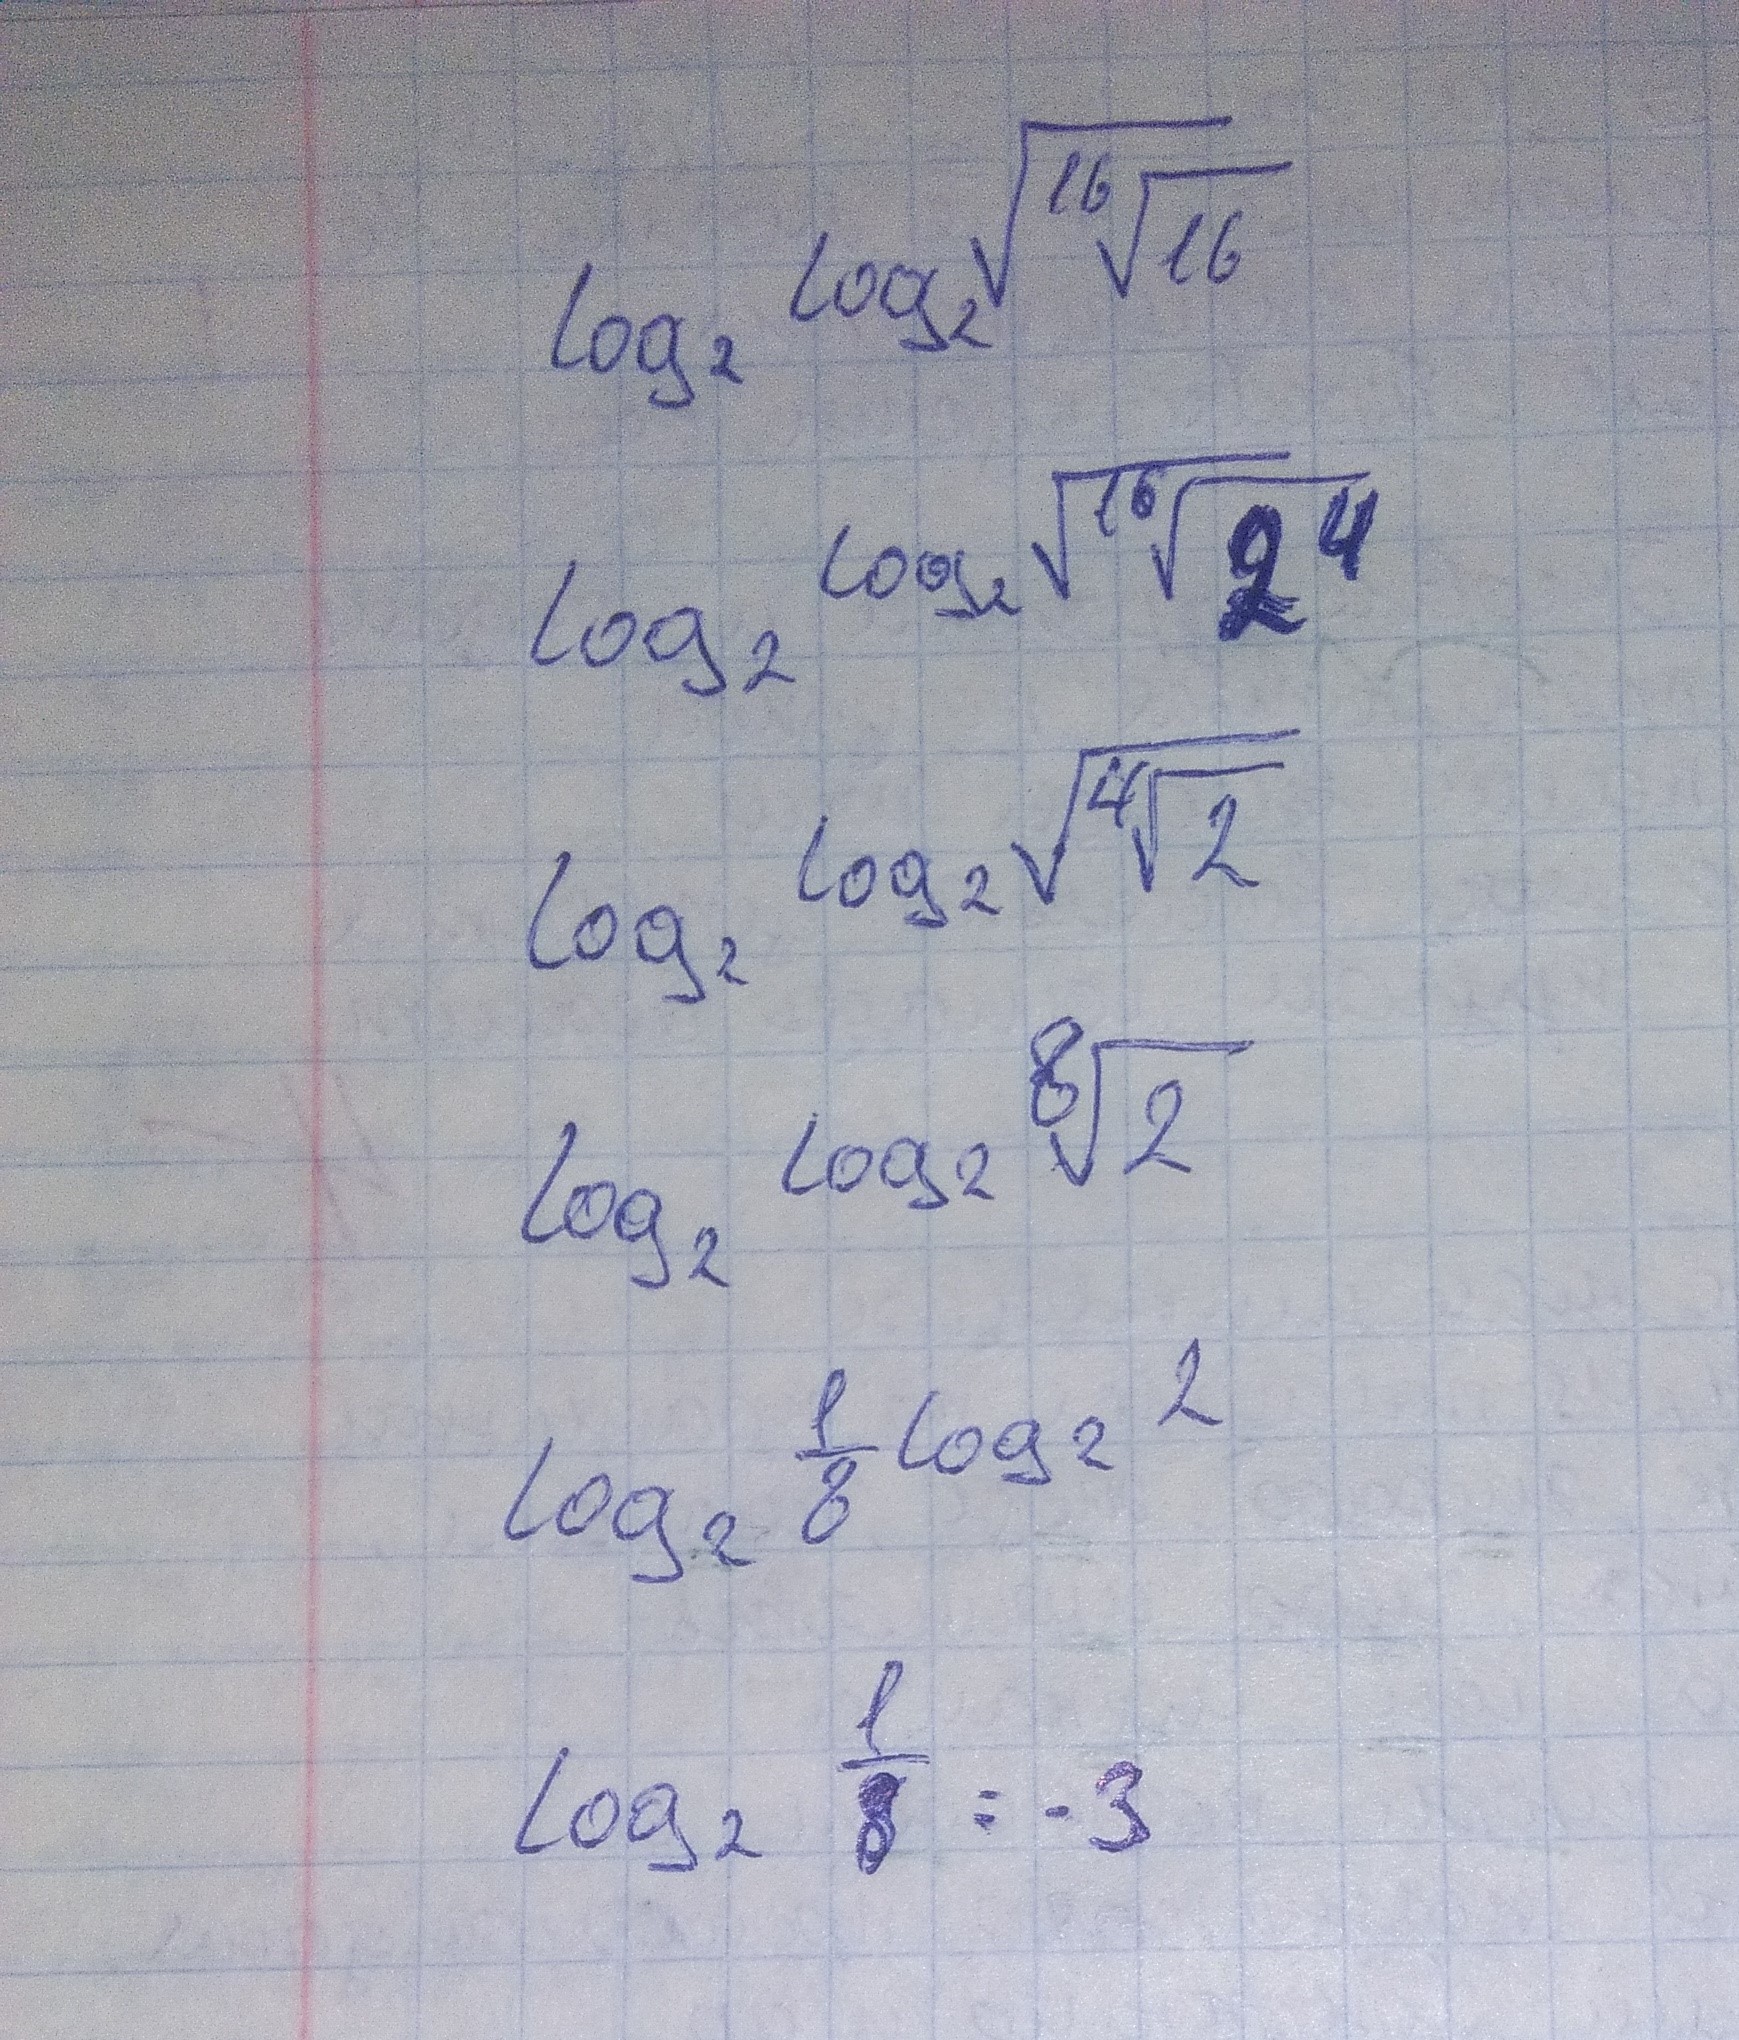 log₂ log₂ √(¹⁶√16)
log₂ log₂ √(¹⁶√2⁴)
log₂ log₂ √(⁴√2)
log₂ log₂ ⁸√2
log₂ 1/8 log₂ 2
log₂ 1/8 = -3